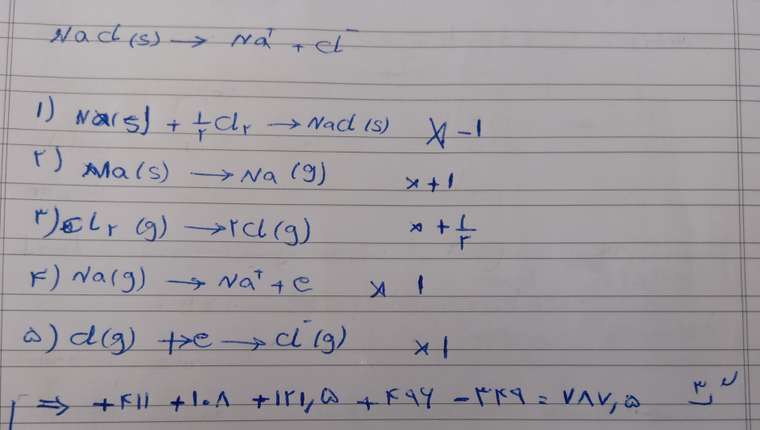 NaCl(s) → Na⁺ + Cl⁻
۱) Na(s) + ۱/۲ Cl۲ → NaCl(s) × -۱
۲) Na(s) → Na(g) × +۱
۳) Cl۲(g) → ۲Cl(g) × + ۱/۲
۴) Na(g) → Na⁺ + e × ۱
۵) Cl(g) + e → Cl⁻(g) × ۱
⇒ +۴۱۱ +۱۰۸ +۱۲۱,۵ + ۴۹۶ - ۳۴۹ = ۷۸۷,۵